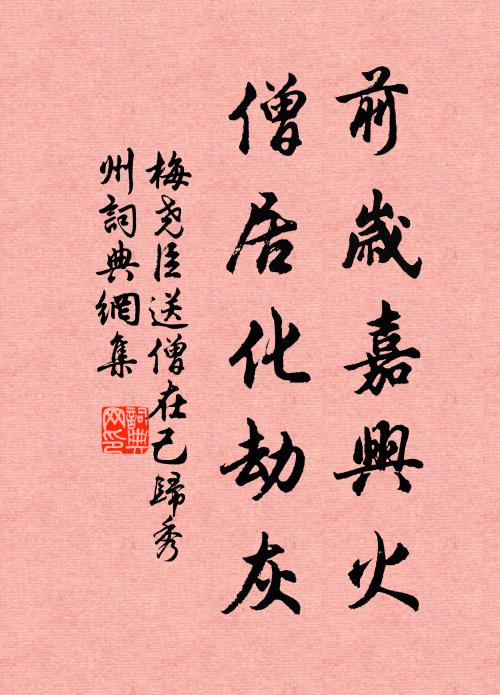 前歲嘉興火
僧居化劫灰
梅尧臣送僧在己歸秀
州詞典網集
詞典
网印